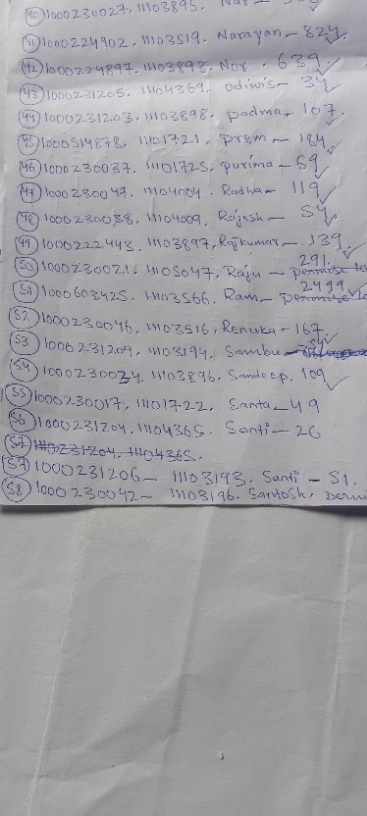 (40) 1000230027, 11103895.
(41) 1000224902, 11103519. Narayan - 824
(42) 1000224897, 11103893, Nor. 639
(43) 1000231205. 1104369. odiwis - 34
(44) 1000231203, 11103898. padma, 107.
(45) 1000514878, 1101721. prem - 184
(46) 1000230037. 1101725, purima - 59
(47) 1000230047, 1104004. Radha - 119
(48) 1000230038, 1104009, Rajesh - 54
(49) 1000222443. 11103897, Rajkumar - 139.
291.
(50) 1000230021. 1105047, Raju -
2499
(51) 1000603425. 11103566. Ram -
(52) 1000230046, 11103516, Renuka - 167.
(53) 1000231209, 11103194, Sambu -
(54) 1000230034, 11103896, Sandeep, 109
(55) 1000230017, 1101722, Santa - 49
(56) 1000231204, 1104365. Santi - 26
(57) 1110231204, 1104365.
(57) 1000231206 - 11103193. Santi - 51.
(58) 1000230042 - 11103196. Santosh,